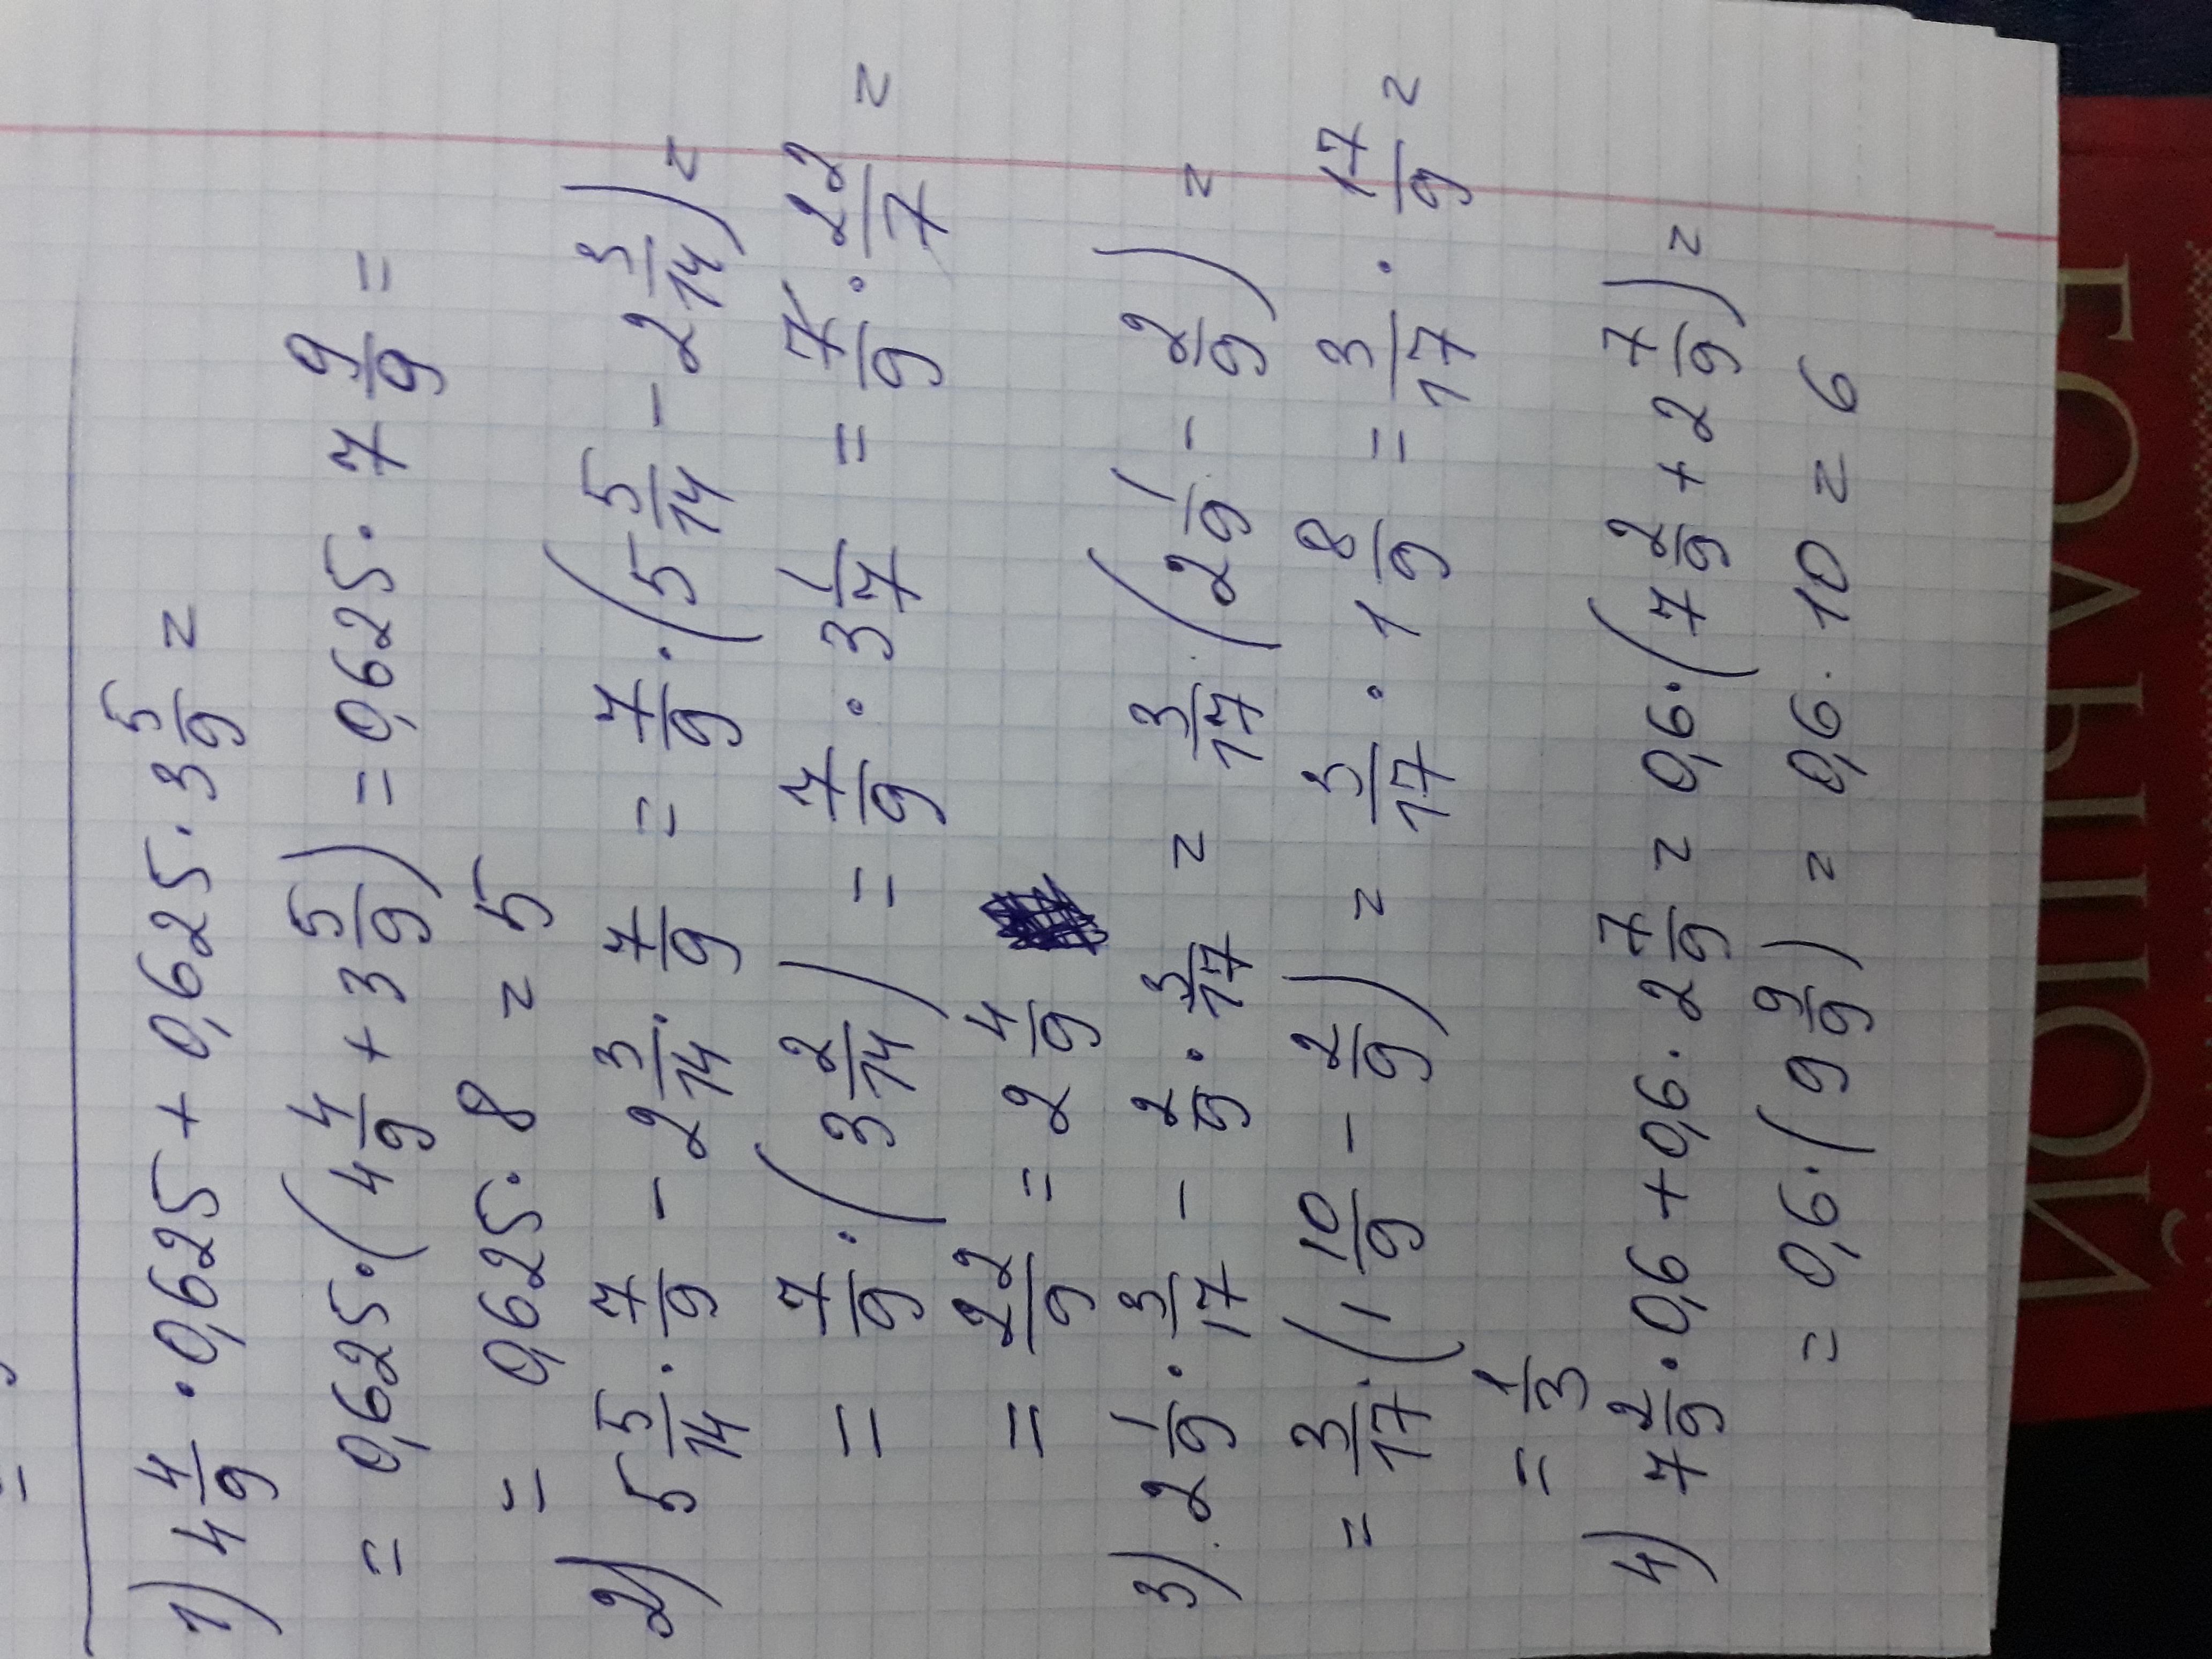 1) 4 4/9 · 0,625 + 0,625 · 3 5/9 =
= 0,625 · (4 4/9 + 3 5/9) = 0,625 · 7 9/9 =
= 0,625 · 8 = 5
2) 5 5/14 · 7/9 - 2 3/14 · 7/9 = 7/9 · (5 5/14 - 2 3/14) =
= 7/9 · (3 2/14) = 7/9 · 3 1/7 = 7/9 · 22/7 =
= 22/9 = 2 4/9
3) 2 1/9 · 3/17 - 2/9 · 3/17 = 3/17 · (2 1/9 - 2/9) =
= 3/17 · (1 10/9 - 2/9) = 3/17 · 1 8/9 = 3/17 · 17/9 =
= 1/3
4) 7 2/9 · 0,6 + 0,6 · 2 7/9 = 0,6 · (7 2/9 + 2 7/9) =
= 0,6 · (9 9/9) = 0,6 · 10 = 6
БОЛЬШОЙ